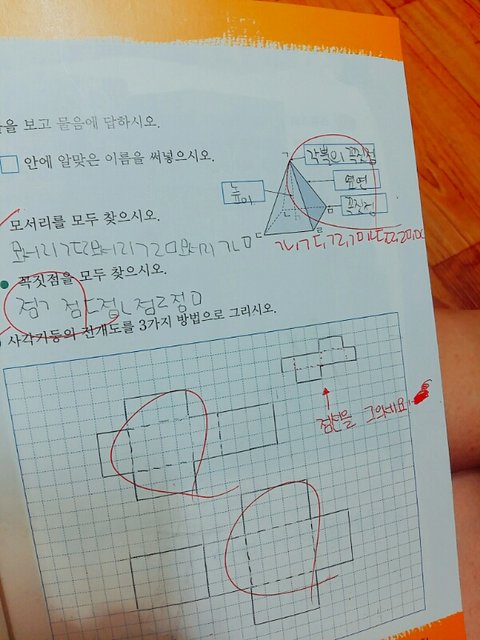 을 보고 물음에 답하시오.
안에 알맞은 이름을 써넣으시오.
각뿔의 꼭짓점
옆면
꼭짓점
높이
모서리를 모두 찾으시오.
꼭짓점을 모두 찾으시오.
점ㄱ 점ㄷ 점ㄴ 점ㄹ 점ㅁ
사각기둥의 전개도를 3가지 방법으로 그리시오.
점선을 그으세요